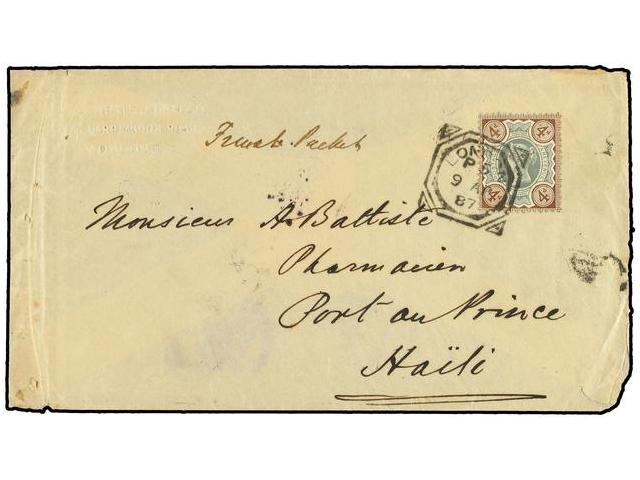 French Packet
4d 4d
4d 4d
LON
P
9 A
87
Monsieur A. Battiste
Pharmacien
Port au Prince
Haïti